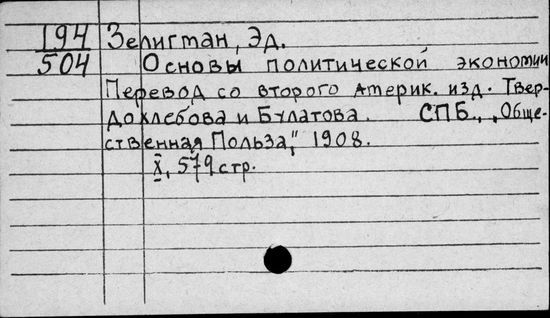 194 Зелигман, Эд.
504 Основы политической экономии
Перевод со второго америк. изд. Твер-
дохлебова и Булатова. СПБ., „Обще-
ственная Польза," 1908.
X, 579 стр.